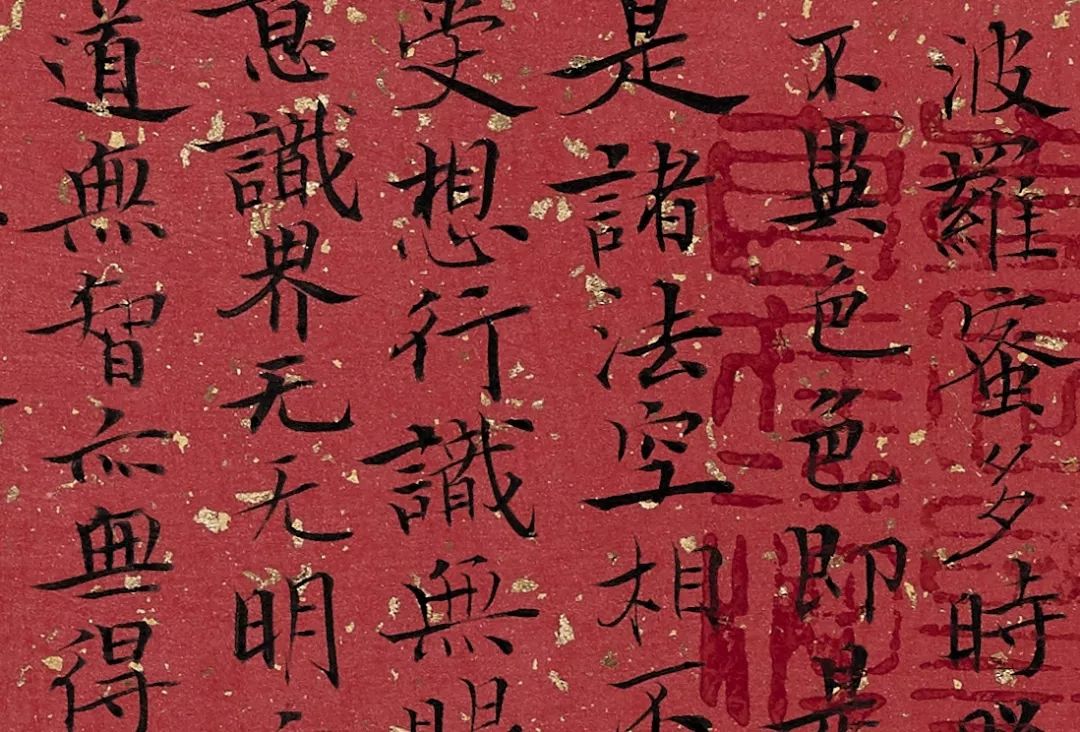 波羅蜜多時
不異色色即是
是諸法空相不
受想行識無眼
意識界无无明
道無智亦無得